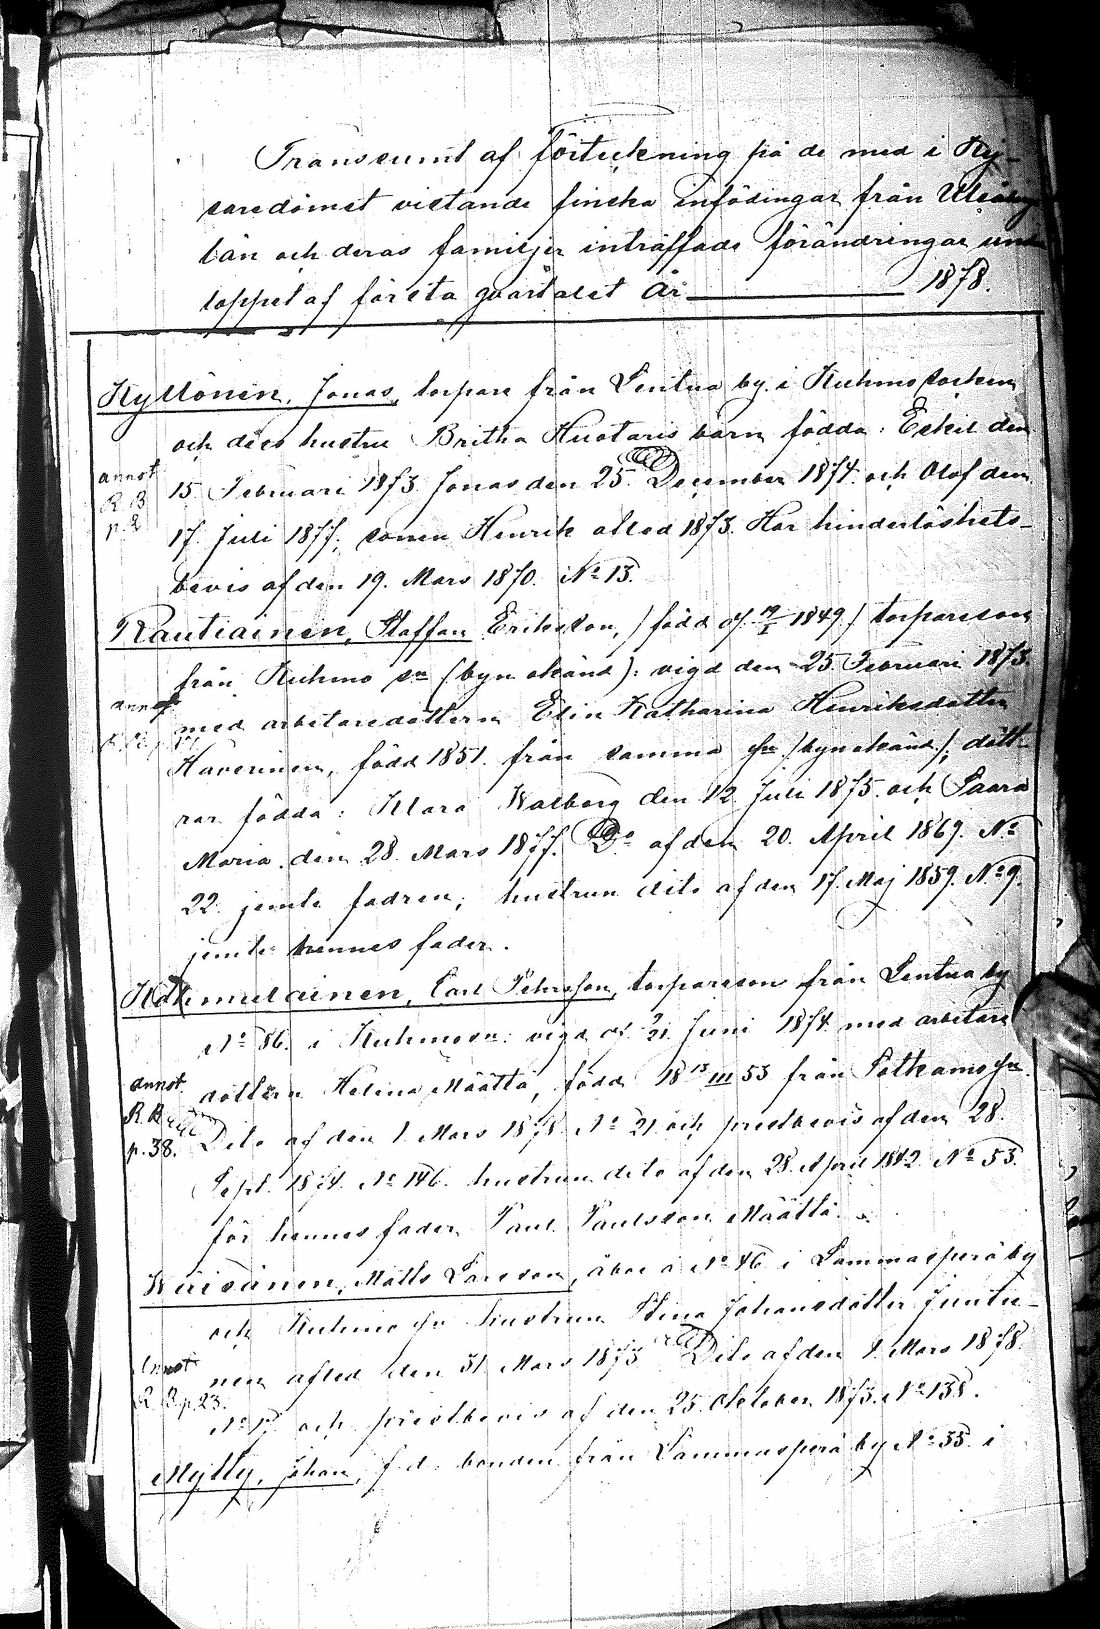 Transsumt af förteckning på de med i Ky-
saredömet vistande finska infödingar från Uleåborgs
län och deras familjer inträffade förändringar under
loppet af första qvartalet År 1878.
Kyllönen, Jonas, torpare från Lentua by i Kuhmo socken
och dess hustru Britha Huotaris barn födda: Eskil den
annot
R. B.
p. 2
15 Februari 1873 Jonas den 25. December 1874. och Olof den
17. Juli 1877; sonen Henrik afled 1873. Har hinderlöshets-
bevis af den 19. Mars 1870. No 13.
Rautiainen, Staffan Eriksson, / född 19/I 1849 / torpareson
från Kuhmo sn (byn okänd): vigd den 25. Februari 1873.
annot
med arbetaredottern Elin Katharina Henriksdotter
Haverinen, född 1851. från samma sn /byn okänd/; dött-
rar födda: Klara Walborg den 12 Juli 1875. och Saara
Maria den 28. Mars 1877. Do af den 20. April 1869. No
22. jemte fadren; hustrun dito af den 17. Maj 1859. No 9.
jemte hennes fader.
Carl Pehrsson, torpareson från Lentua by
No 86. i Kuhmo sn: vigd Juni 1874 med arbetare
annot
dottern Helena Määttä, född 18 13/III 53 från Sotkamo sn.
R. B.
p. 38.
Dito af den 1. Mars 1878. No 21 och prestbevis af den 28.
Sept. 1874. No 146. hustrun dito af den 28. April 1842. No 53.
för hennes fader Paul Paulsson Määttä.
Wäisänen, Matts Larsson, åbo å No 46 i Lammasperä by
och Kuhmo sn hustrun Stina Johansdotter Juntu-
annot
nen afled den 31. Mars 1873 Dito af den 1. Mars 1878.
R. B. p. 23.
No 17 och prestbevis af den 25. Oktober 1873. No 138.
Mylly, Johan, f. d. bonden från Lammasperä by No 35. i